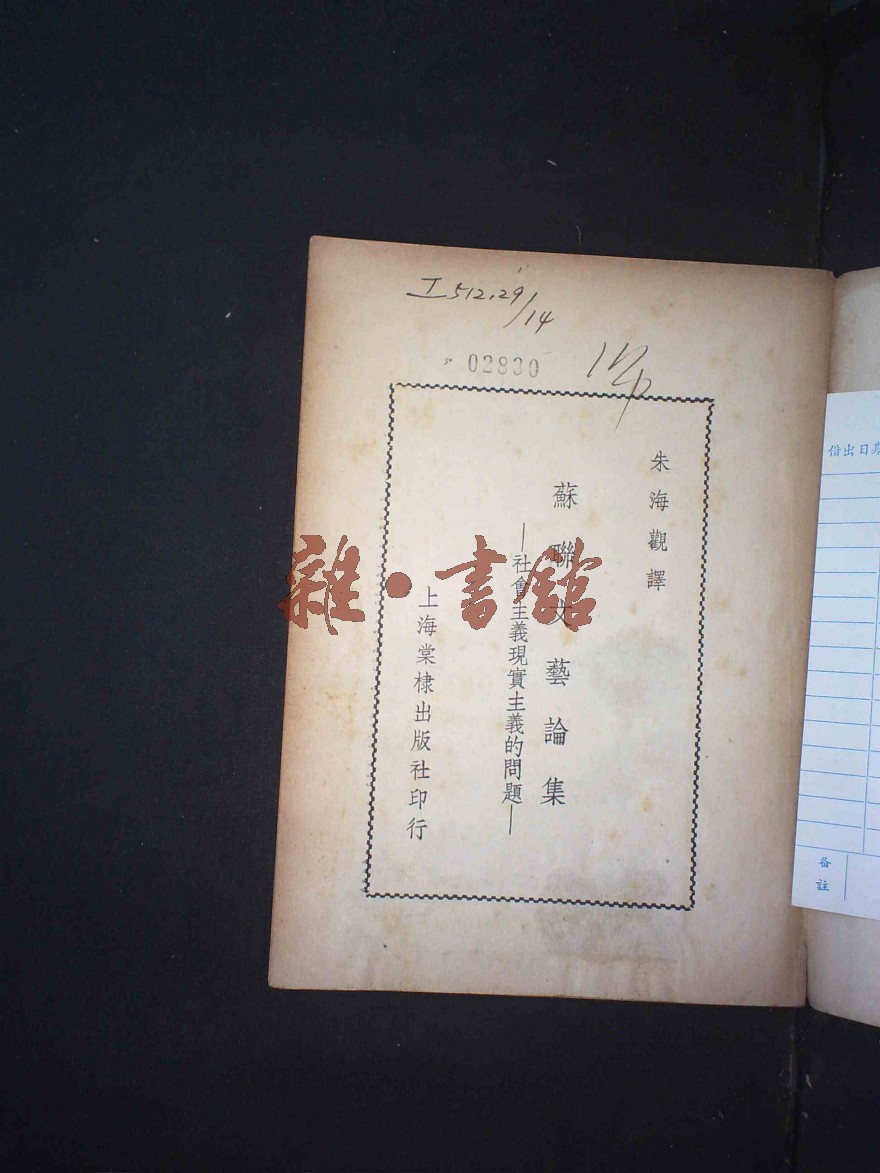 I512.29/14
02830
朱海觀譯
蘇聯文藝論集
—社會主義現實主義的問題—
上海棠棣出版社印行
雜·書館
借出日期
备註